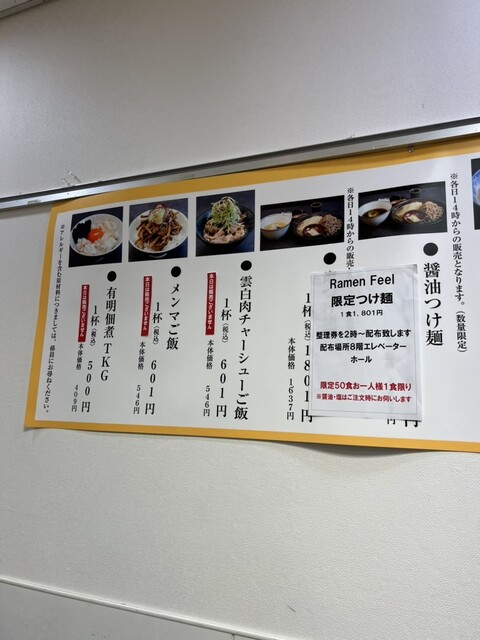 ※各日14時からの販売となります。(数量限定)
●醤油つけ麺
円
※各日14時からの販売
●
1杯(税込) 1801円
本体価格 1637円
Ramen Feel
限定つけ麺
1食1.801円
整理券を2時~配布致します
配布場所8階エレベーター
ホール
限定50食お一人様1食限り
※醤油・塩はご注文時にお伺いします
●雲白肉チャーシューご飯
本日は販売ございません
1杯(税込) 601円
本体価格 546円
●メンマご飯
本日は販売ございません
1杯(税込) 601円
本体価格 546円
●有明佃煮TKG
本日は販売ございません
1杯(税込) 500円
本体価格 409円
※アレルギーを含む原材料につきましては、係員にお尋ねください。